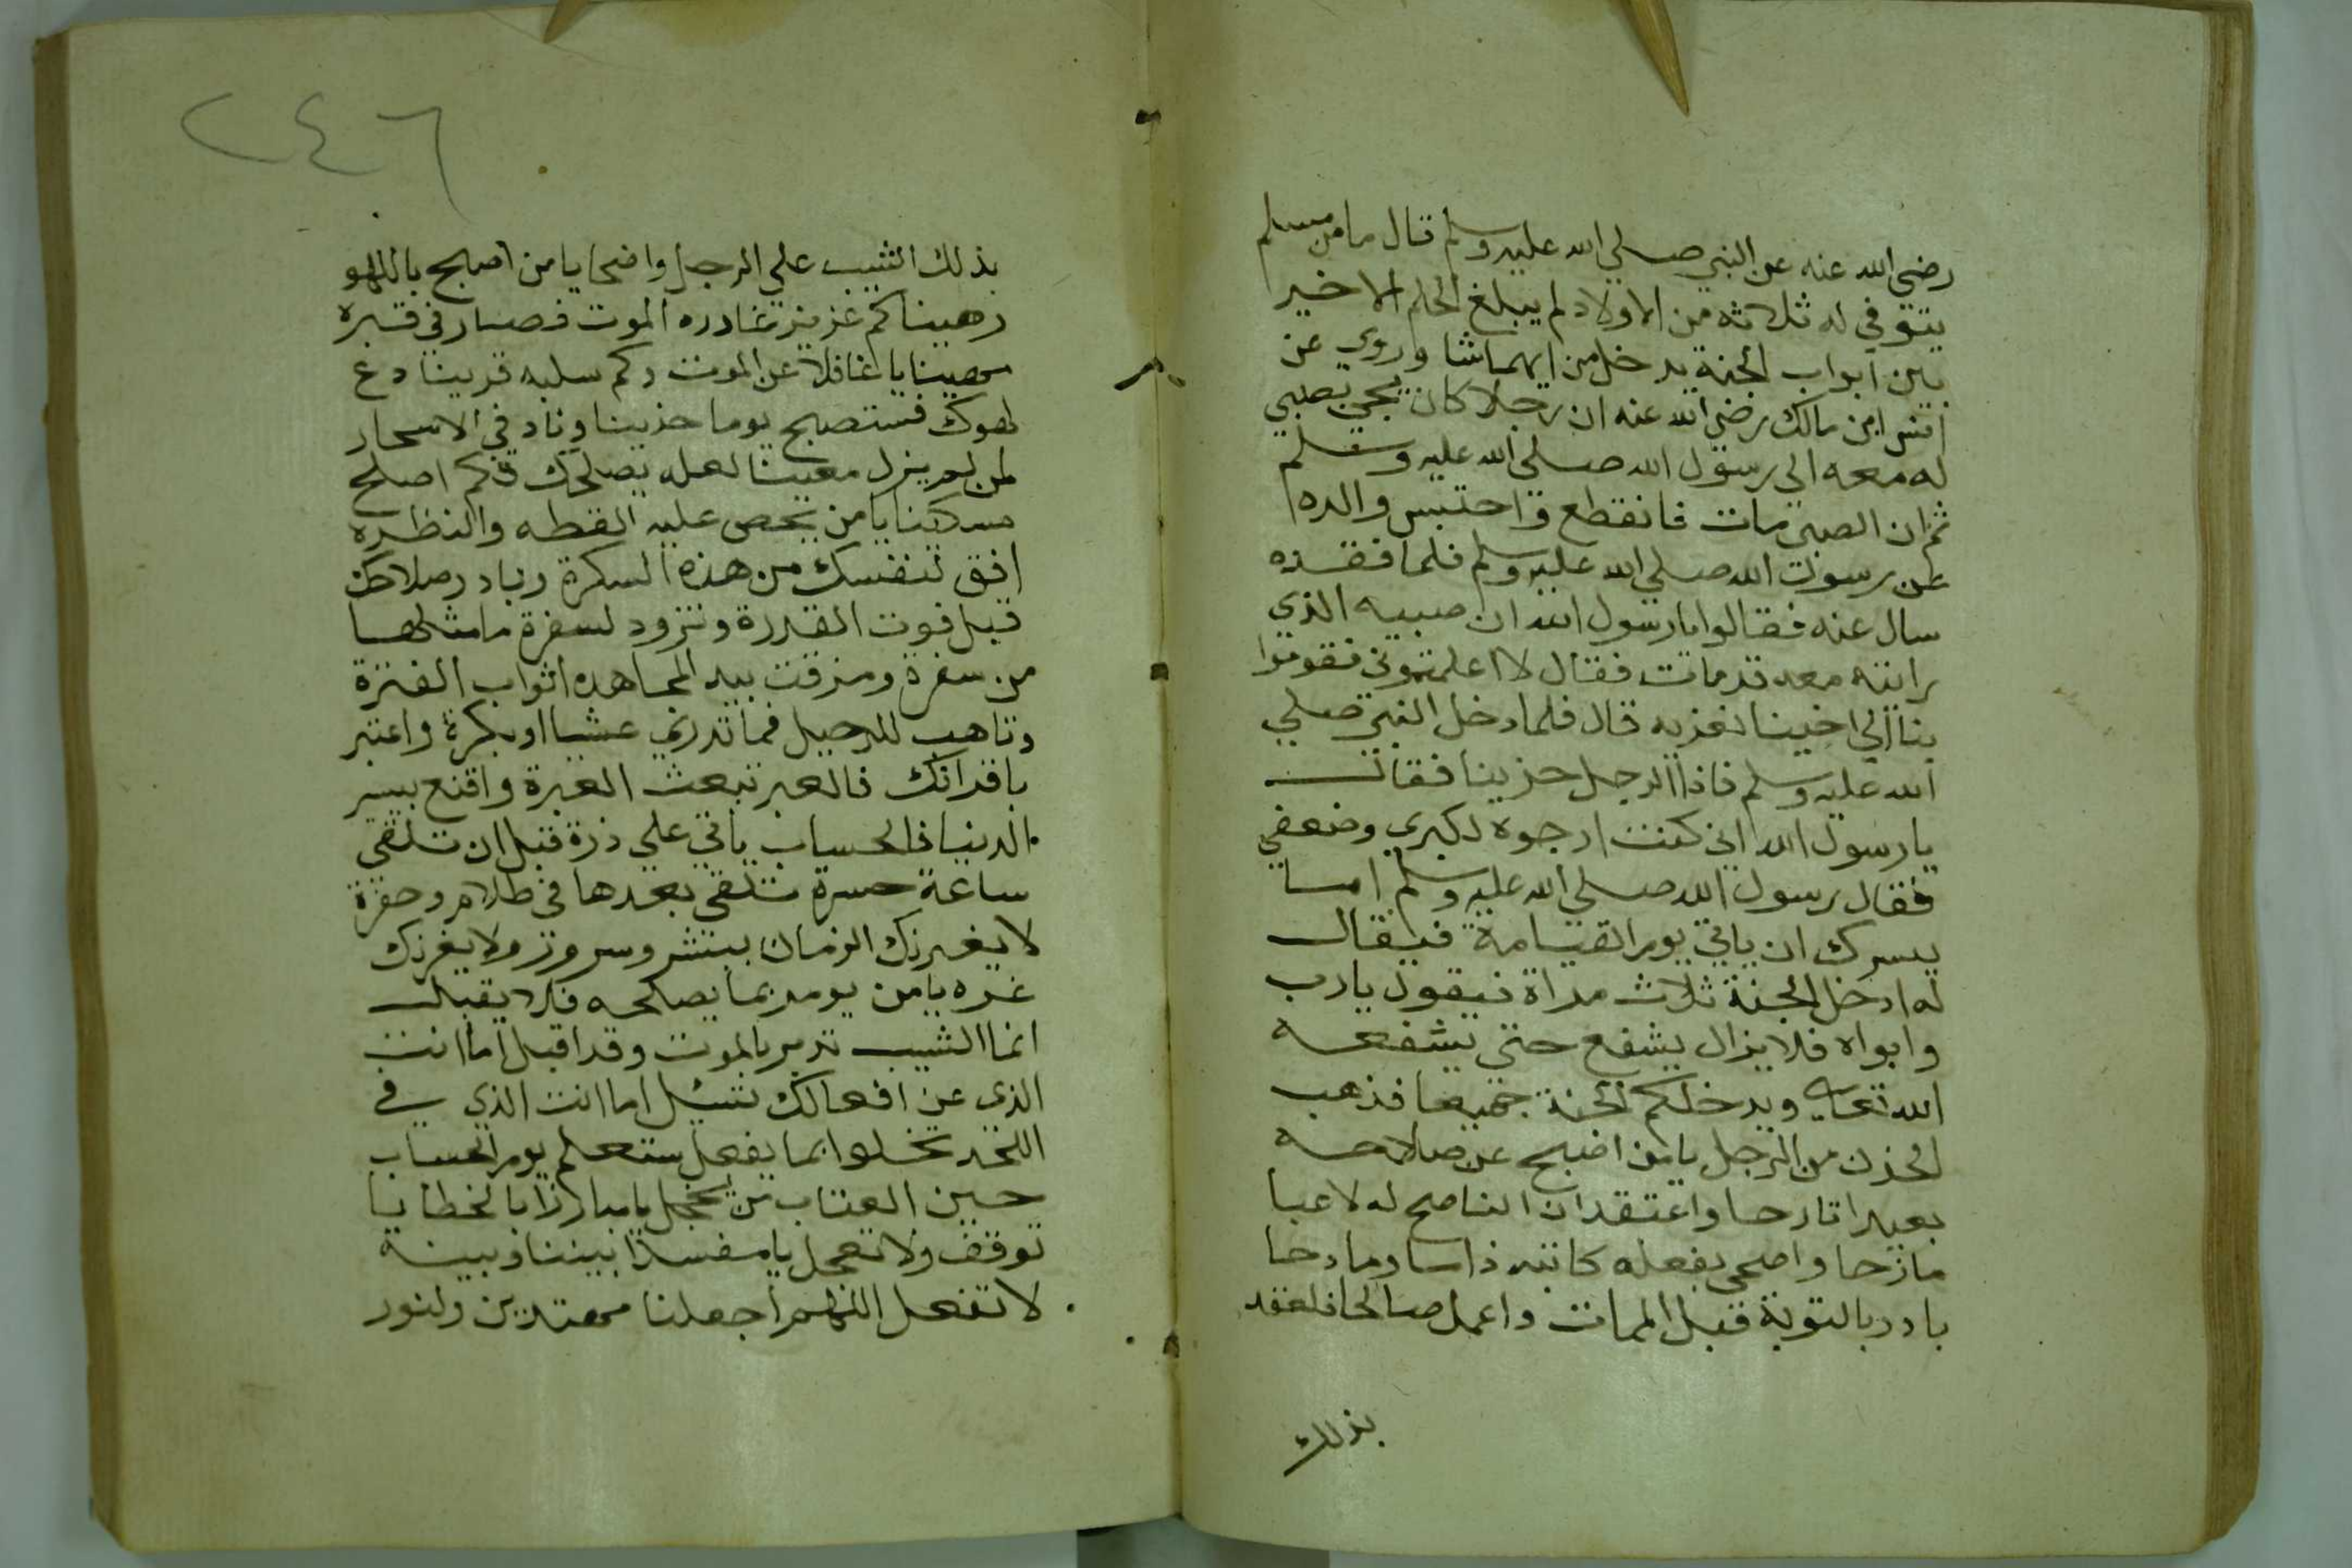 رضي الله عنه عن النبي صلي الله عليه وسلم قال ما من مسلم
يتوفي له ثلاثه من الاولاد لم يبلغ الحلم الا خير
بين ابواب الجنة يدخل من ايهما شا وروي عن
انس ابن مالك رضي الله عنه ان رجلا كان يجي بصبي
له معه الي رسول الله صلي الله عليه وسلم
ثم ان الصبي مات فانقطع واحتبس والده
عن رسول الله صلي الله عليه وسلم فلما فقده
سال عنه فقالوا يا رسول الله ان صبيه الذي
رايته معه قد مات فقال لا اعلمتموني فقوموا
بنا الي اخينا نعزيه قال فلما دخل النبي صلي
الله عليه وسلم فاذا الرجل حزينا فقال
يا رسول الله اني كنت ارجوه لكبري وضعفي
فقال رسول الله صلي الله عليه وسلم اما
يسرك ان ياتي يوم القيامة فيقال
له ادخل الجنة ثلاث مراة فيقول يا رب
وابواه فلا يزال يشفع حتي يشفعه
الله تعالي ويدخلكم الجنة جميعا فذهب
الحزن من الرجل يا من اصبح عن صلاحه
بعيدا نازحا واعتقد ان الناصح له لاعبا
مازحا واضحي بفعله كاتبه ذاما ومادحا
بادر بالتوبة قبل الممات واعمل صالحا فلعقد
بذلك
٢٤٦
بذلك الشيب علي الرجل واضحا يا من اصبح باللهو
رهينا كم عزيز غادره الموت فصار في قبره
يا غافلا عن الموت وكم سلبه قرينا دع
لهوك فستصبح يوما حزينا وناد في الاسحار
لمن لم يزل معينا لعله يصلحك فكم اصلح
مسكينا يا من يحصى عليه القطه والنظره
افق لنفسك من هذه السكرة وبادر صلاحك
قبل فوت القدرة وتزود لسفرة ما مثلها
من سفرة ومزقت بيد المجاهده اثواب الفترة
وتاهب للرحيل فما تدري عشيا او بكرة واعتبر
باقرانك فالعبر تبعث العبرة واقنع بيسير
الدنيا فالحساب ياتي علي ذرة قبل ان تلقي
ساعة حسرة تلقي بعدها في ظلام وحفرة
لا يغيرنك الزمان ببشر وسرور ولا يغرنك
غره يا من يومر بما يصلحه فلا يقبل
انما الشيب نذير بالموت وقد اقبل اما انت
الذي عن افعالك تسئل اما انت الذي في
اللحد تخلوا بما يفعل ستعلم يوم الحساب
حين العتاب من يخجل يا مبارزا بالخطايا
توقف ولا تعجل يا مفسدا بيننا وبينه
لا تفعل اللهم اجعلنا مهتدين ولنور